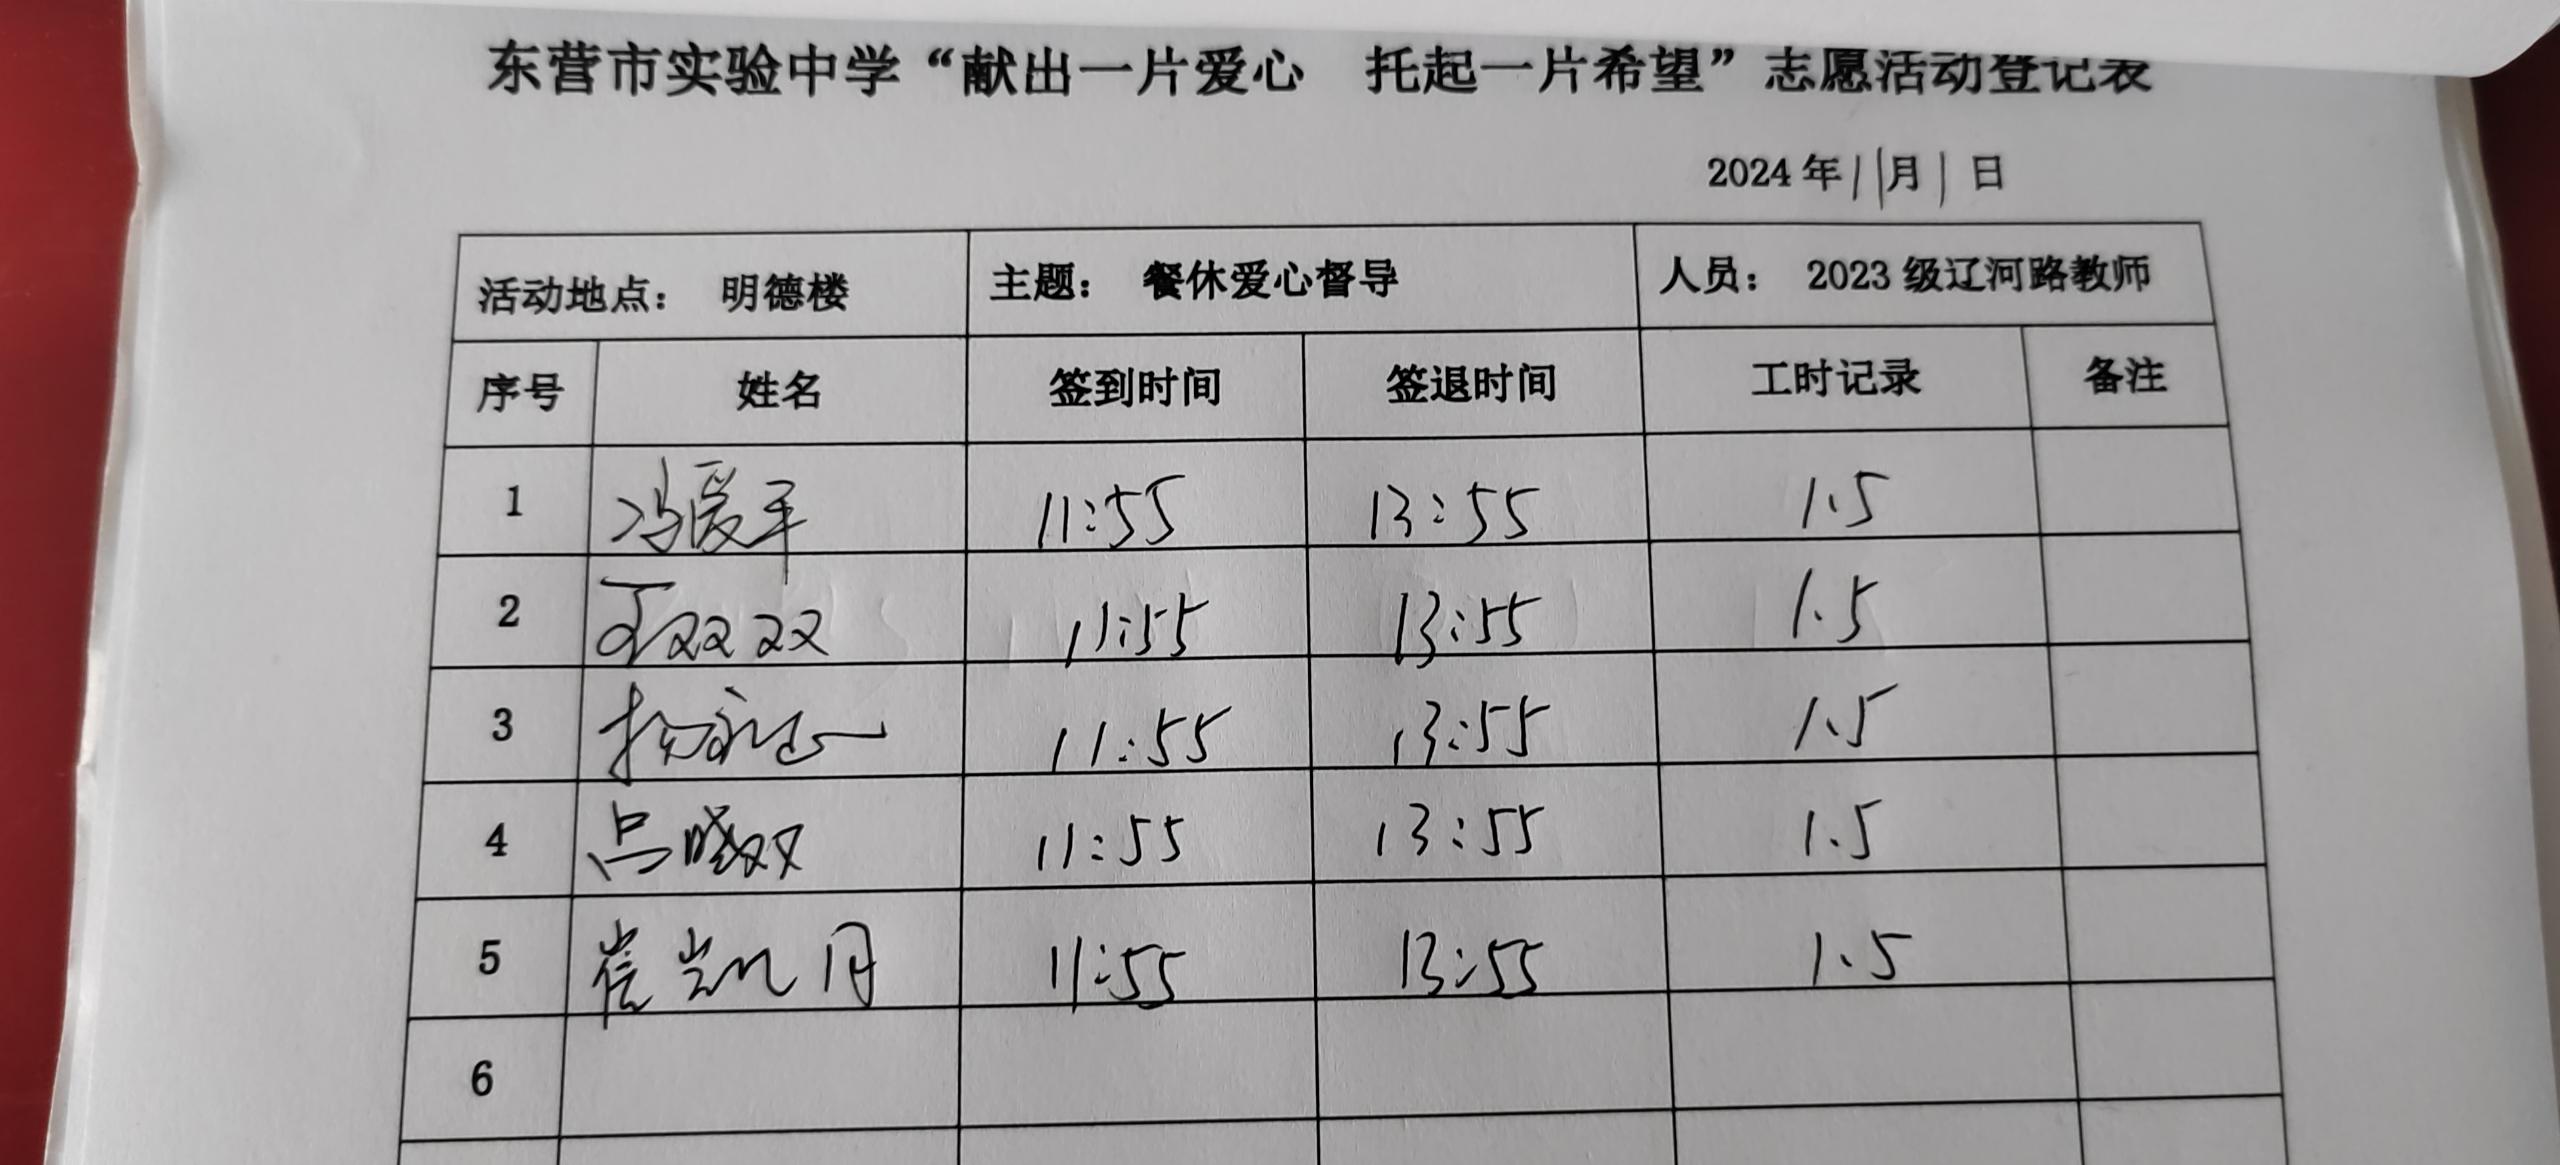 东营市实验中学“献出一片爱心 托起一片希望”志愿活动登记表
2024年11月1日
活动地点： 明德楼 主题： 餐休爱心督导 人员： 2023级辽河路教师
序号 姓名 签到时间 签退时间 工时记录 备注
1 冯爱军 11:55 13:55 1.5
2 11:55 13:55 1.5
3 11:55 13:55 1.5
4 吕晓双 11:55 13:55 1.5
5 崔凯月 11:55 13:55 1.5
6